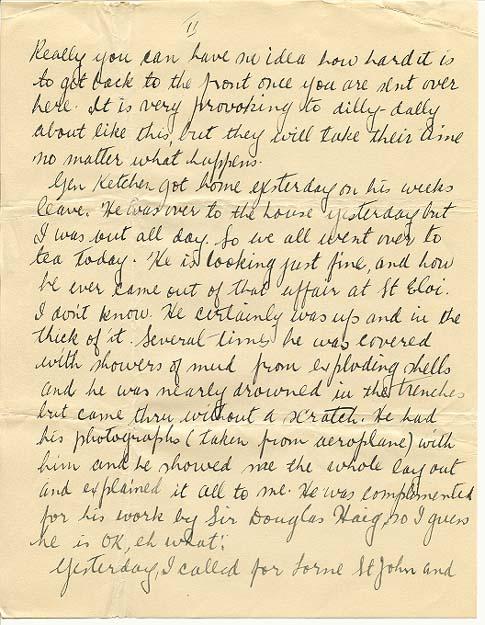 II
Really you can have no idea how hard it is
to get back to the front once you are sent over
here. It is very provoking to dilly-dally
about like this, but they will take their time
no matter what happens.
Gen Ketchen got home yesterday on his weeks
leave. He was over to the house yesterday but
I was out all day. So we all went over to
tea today. He is looking just fine, and how
he ever came out of that affair at St Eloi.
I don't know. He certainly was up and in the
thick of it. Several times he was covered
with showers of mud from exploding shells
and he was nearly drowned in the trenches
but came thru without a scratch. He had
his photographs (taken from aeroplane) with
him and he showed me the whole lay out
and explained it all to me. He was complemented
for his work by Sir Douglas Haig, so I guess
he is OK, eh what!
Yesterday, I called for Lorne St John and